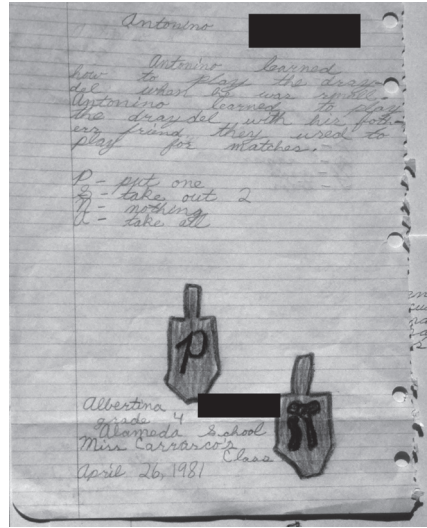 Antonino
Antonino learned
how to play the dray-
del when he was small.
Antonino learned to play
the draydel with his fath-
ers friend, they used to
play for matches.
P - put one
S - take out 2
N - nothing
- take all
P
Albertina
grade 4
Alameda School
Miss Carrasco's
Class
April 26, 1981